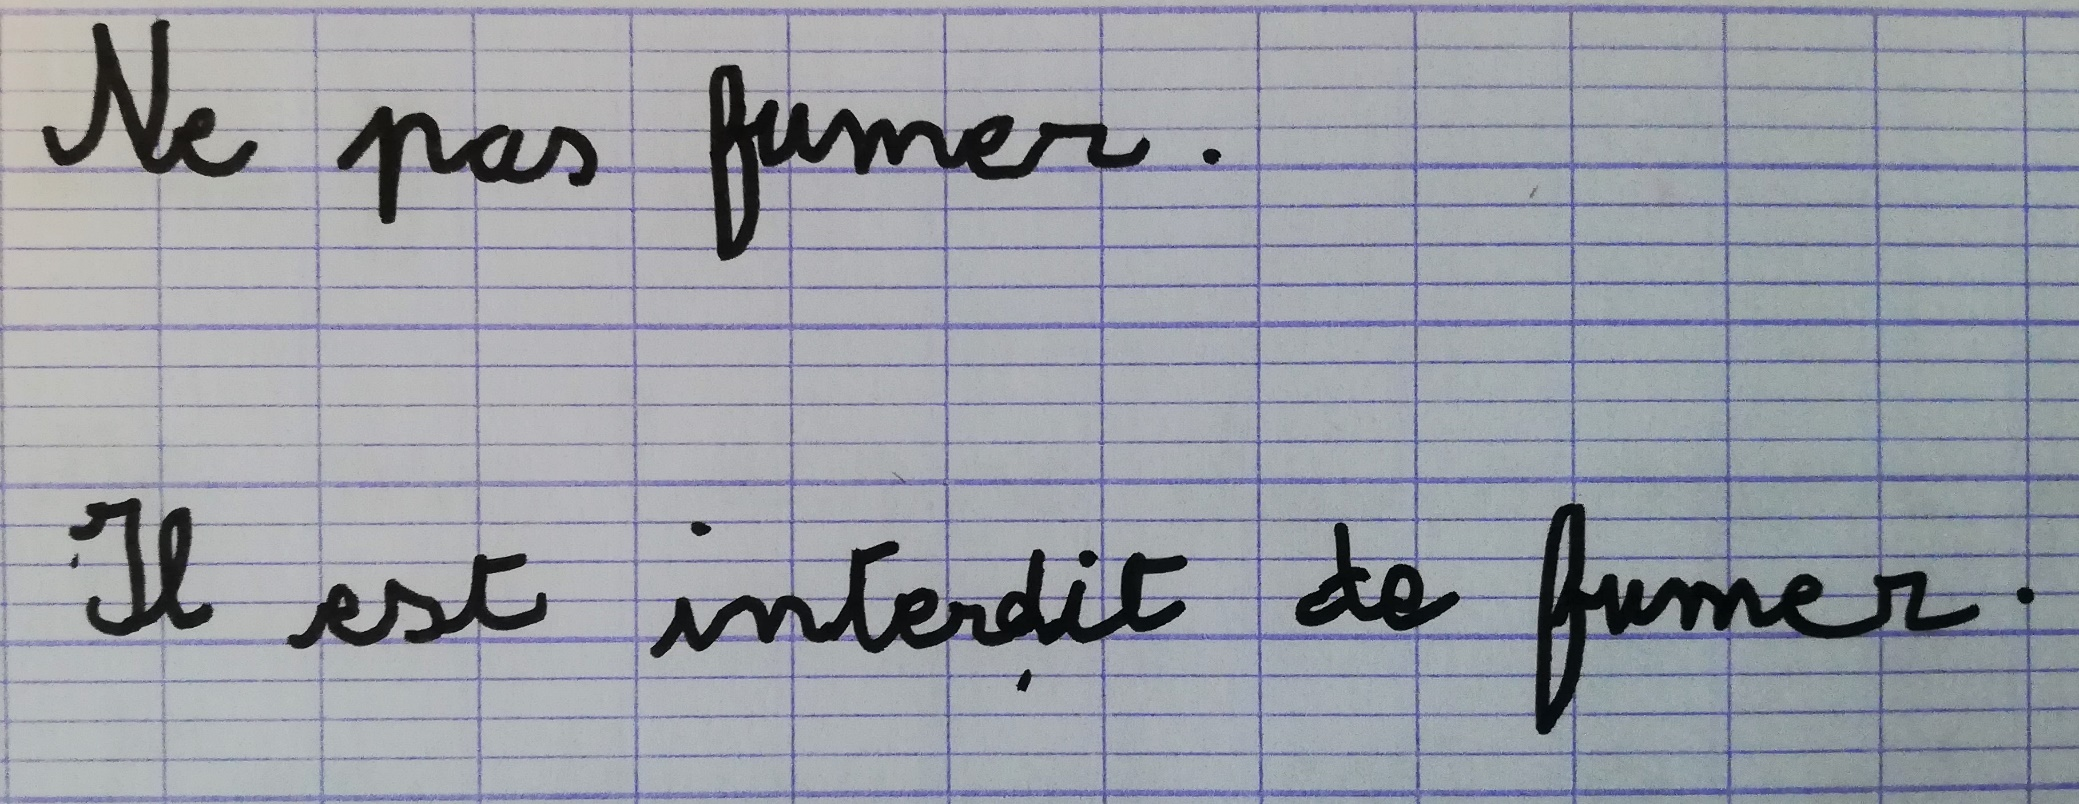 Ne pas fumer.
Il est interdit de fumer.